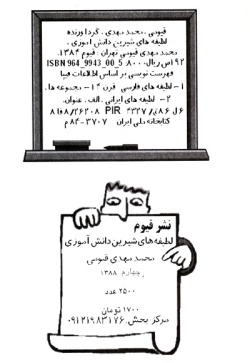 قیومی، محمد مهدی، گردآورنده
لطیفه های شیرین دانش آموزی،
محمد مهدی قیومی تهران: قیوم ۱۳۸۴،
۹۲ص ریال: ۸۰۰۰ ISBN 964_9943_00_5
فهرست نویسی بر اساس اطلاعات فیپا
۱- لطیفه های فارسی قرن ۱۴- مجموعه ها.
۲- لطیفه های ایرانی، الف. عنوان.
PIR ۴۳۲۷/
کتابخانه ملی ایران ۳۷۰۷-۸۴م
نشر قیوم
لطیفه های شیرین دانش آموزی
محمد مهدی قیومی
چهارم ۱۳۸۸
۲۵۰۰ عدد
۱۷۰۰ تومان
مرکز پخش: ۰۹۱۲۱۹۸۳۱۷۶